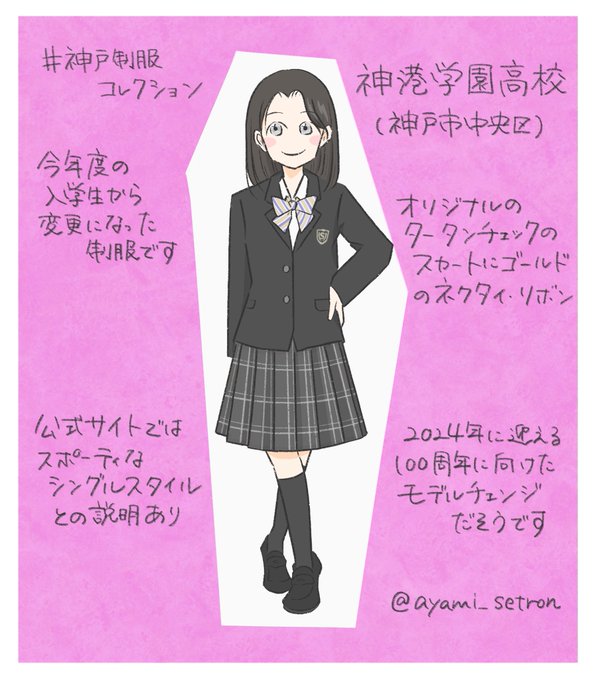 #神戸制服
コレクション
神港学園高校
(神戸市中央区)
今年度の
入学生から
変更になった
制服です
オリジナルの
タータンチェックの
スカートにゴールド
のネクタイ・リボン
公式サイトでは
スポーティな
シングルスタイル
との説明あり
2024年に迎える
100周年に向けた
モデルチェンジ
だそうです
@ayami_setron